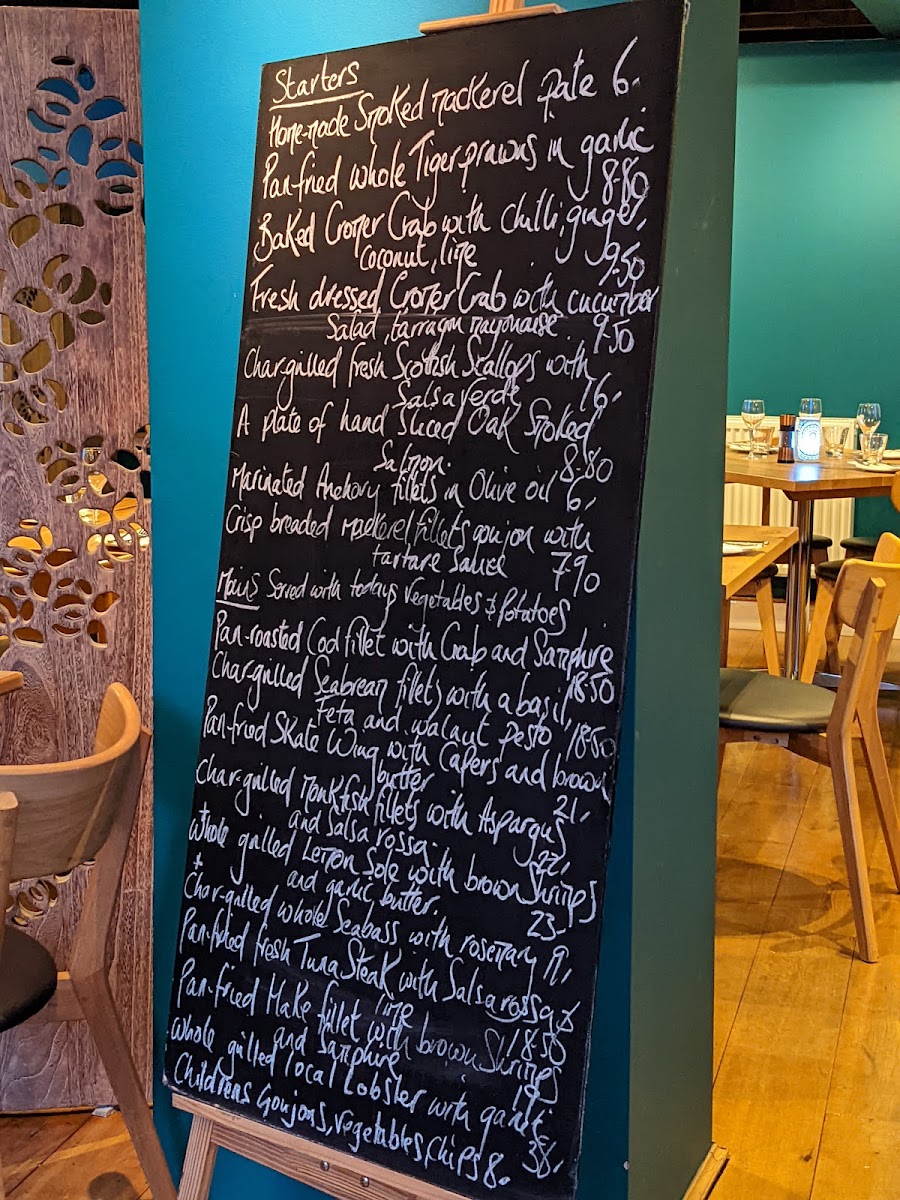 Starters
Home-made Smoked Mackerel pate 6-
Pan fried whole Tiger prawns in garlic
8.80
Baked Cromer Crab with chilli, ginger,
coconut, lime 9.50
Fresh dressed Cromer Crab with cucumber
Salad, tarragon mayonaise 9.50
Char-grilled fresh Scottish Scallops with
Salsa verde 16,
A plate of hand sliced Oak Smoked
Salmon. 8-80
Marinated Anchovy fillets in Olive oil 6,
Crisp breaded Mackerel fillets goujon with
tartare Sauce 7.90
Mains Served with todays vegetables & Potatoes
Pan-roasted Cod fillet with Crab and Samphire
18.50
Char-grilled Seabream fillets with a basil,
Feta and walnut pesto 18.50
Pan-fried Skate Wing with Capers and brown
butter 21,
Char-grilled Monkfish fillets with Aspargus
and Salsa rossa. 22,
+ Whole grilled Lemon Sole with brown Shrimps
and garlic butter. 23-
+ Char-grilled whole Seabass with rosemary 19,
Pan-fried fresh Tuna Steak with Salsa rossa &
lime 18.50
Pan-fried Hake fillet with brown Shrimps
and Samphire 19,
Whole grilled local Lobster with garlic
38,
Childrens Goujons, vegetables, Chips 8.